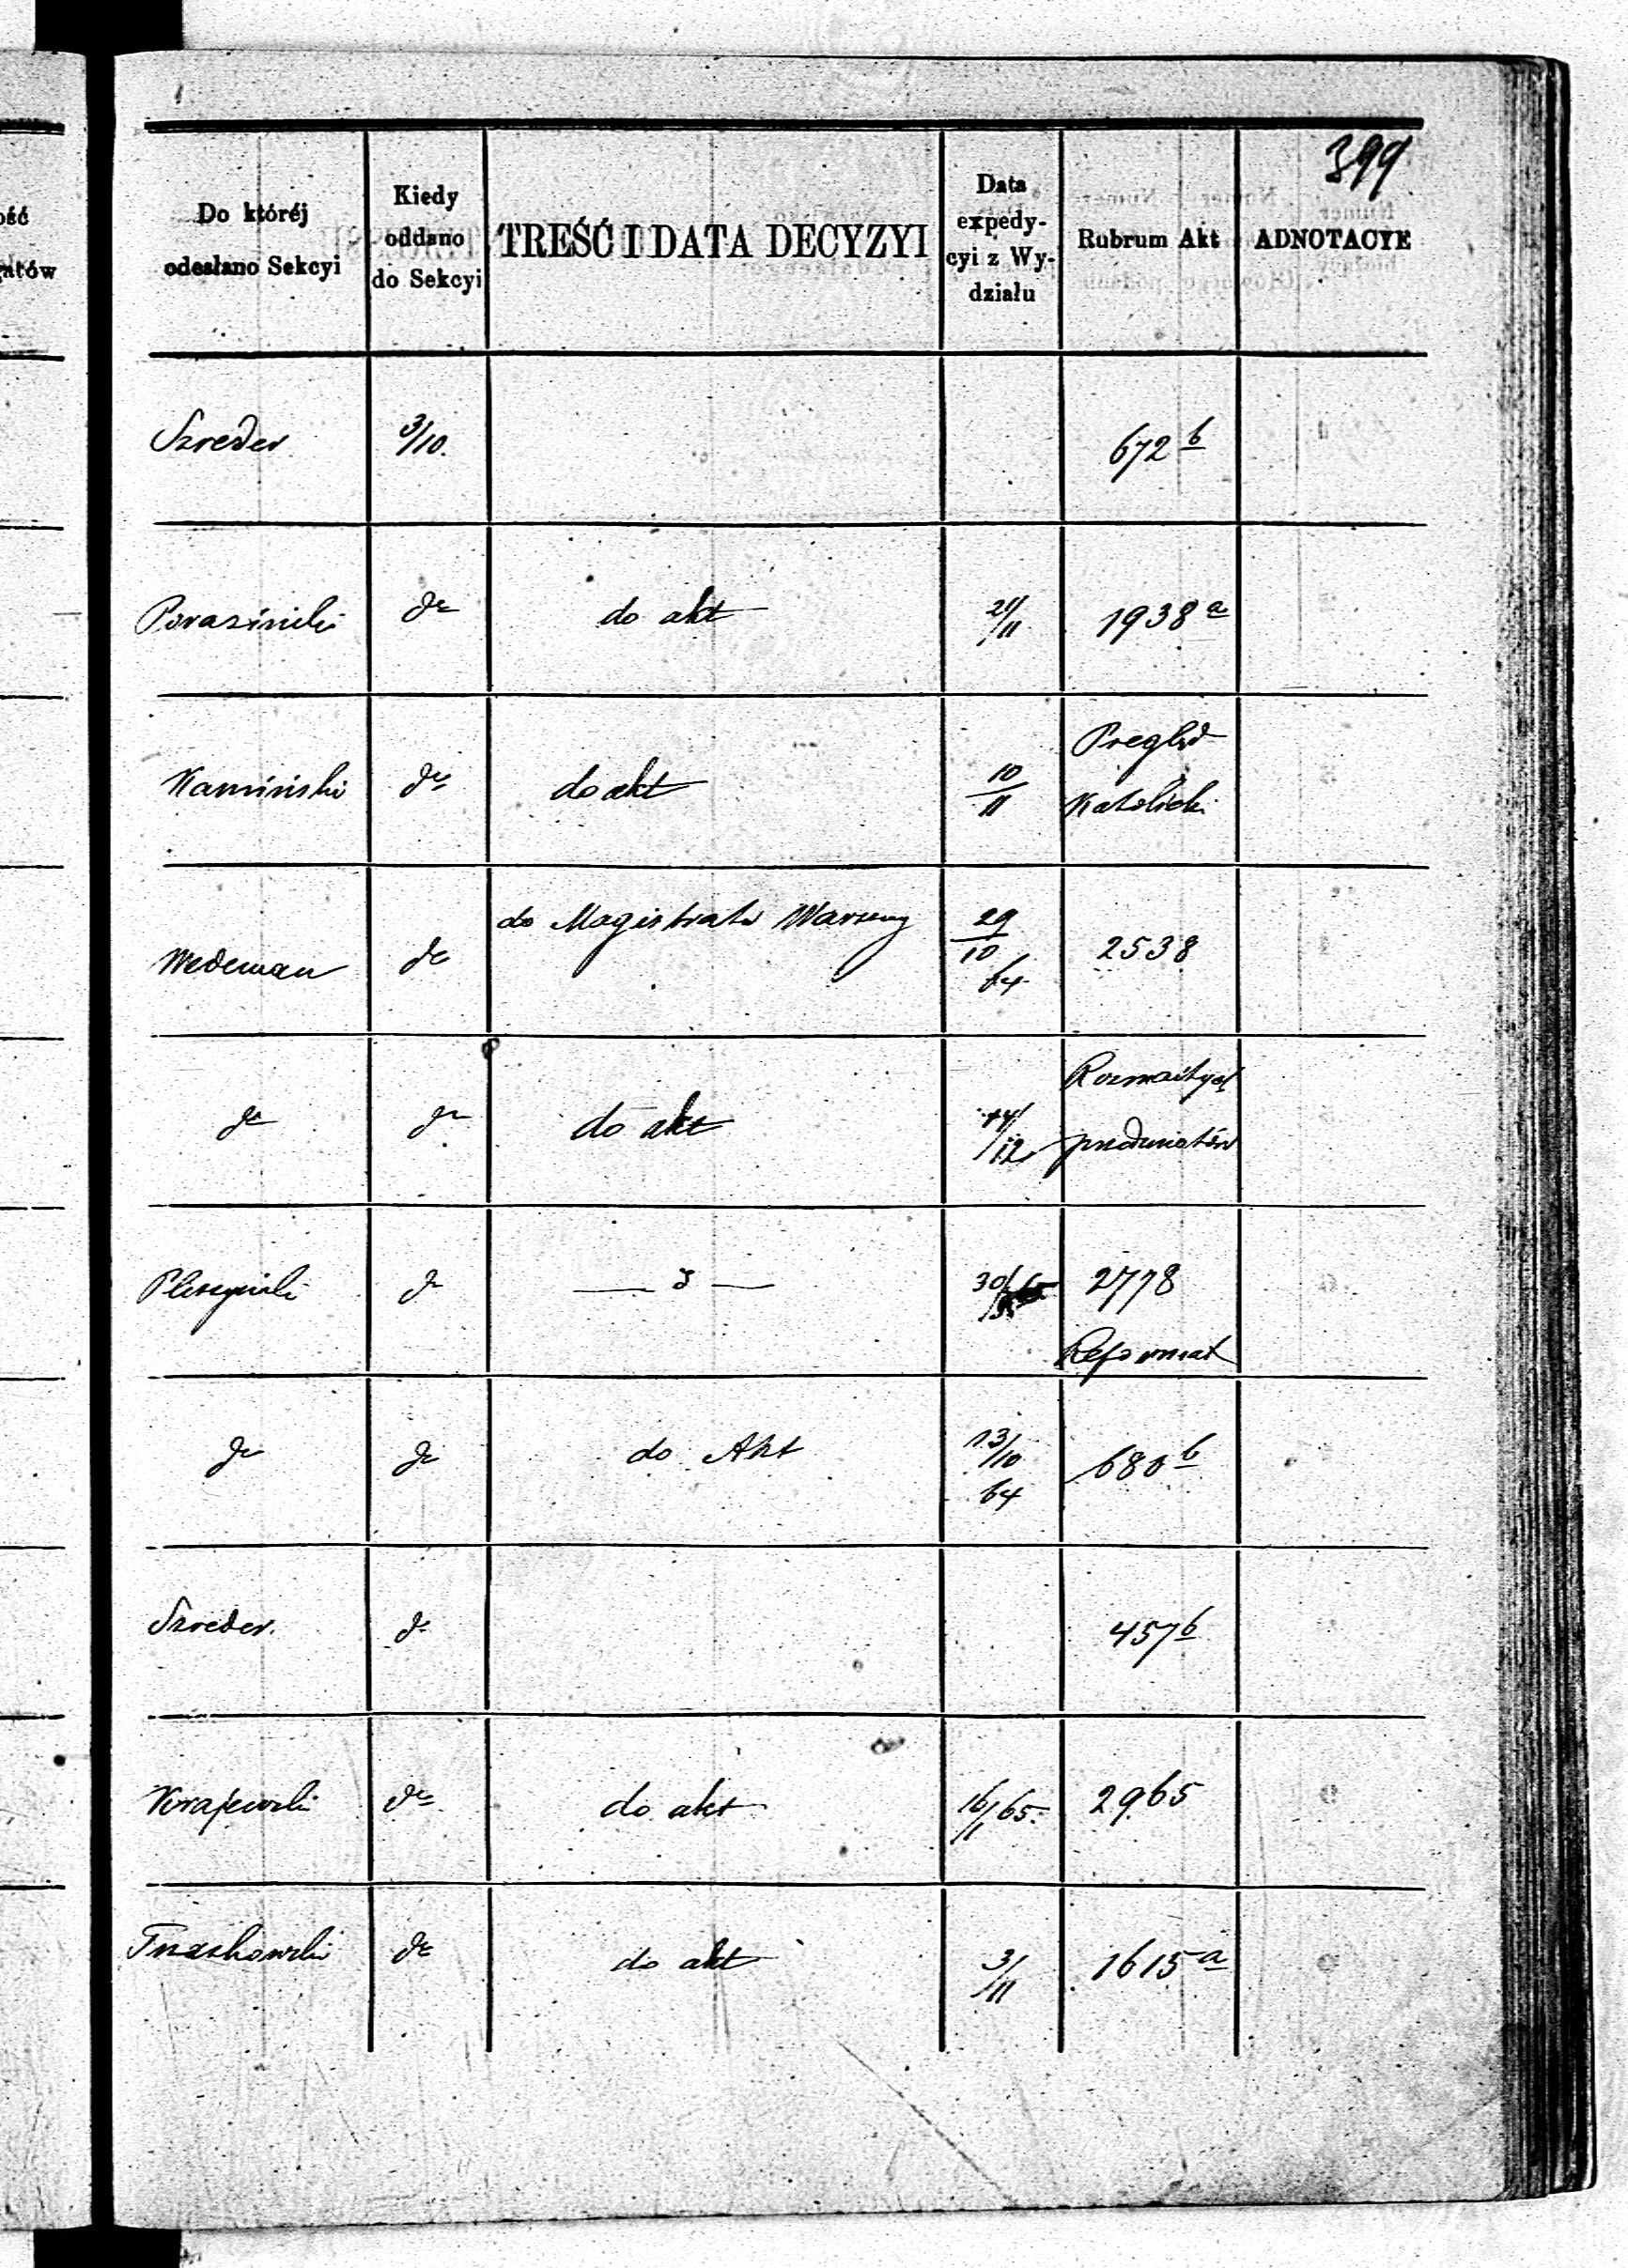 ość
atów
399
Do któréj
odesłano Sekcyi
Kiedy
oddano
do Sekcyi
TREŚĆ I DATA DECYZYI
Data
expedy-
cyi z Wy-
działu
Rubrum Akt
ADNOTACYE
Szreder 3/10. 672 b
do akt 21/11 1938 a
Kamiński do akt 10/11 Pregląd
Katolicki
Wedeman do do Magistratu Warszawy 29/10 2538
64
do do do akt 14/12 Rozmaitych
przedmiotów
do 30/ 2778
Reformat
do do do Akt 13/10 680 b
64
Szreder. do 457 b
Krajewski do akt 16/1 65. 2965
do do akt 3/11 1615 a